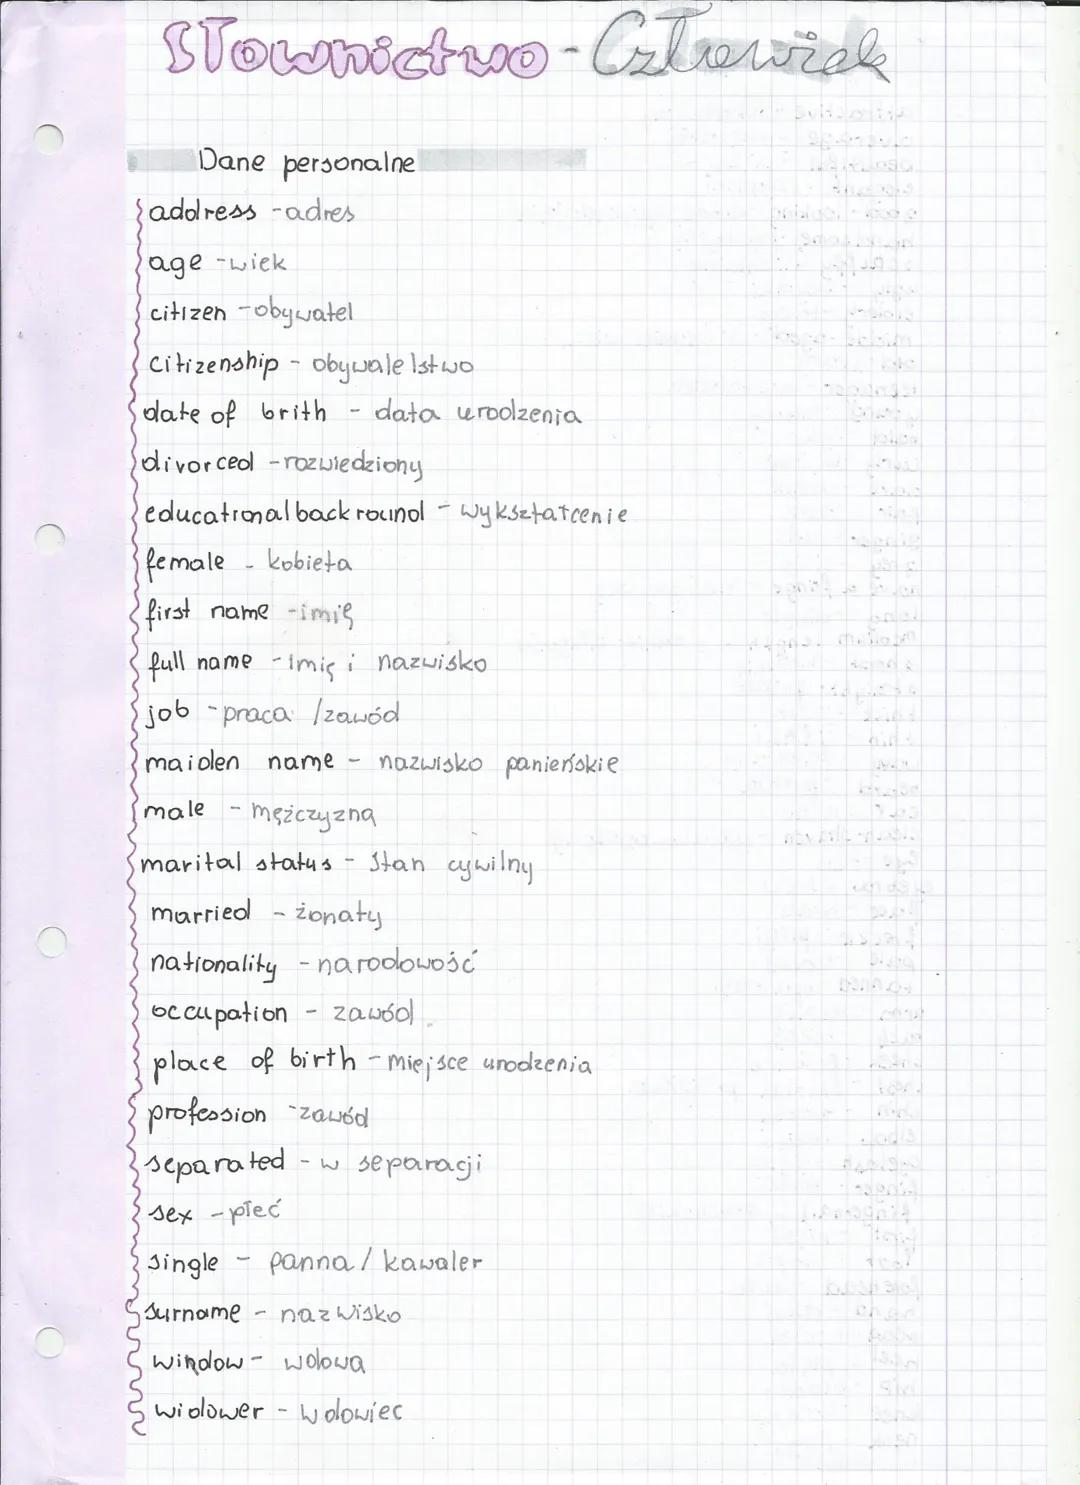 Słownictwo - Człowiek
Dane personalne
address - adres
age - wiek
citizen - obywatel
citizenship - obywalelstwo
date of brith - data urodzenia
divorced - rozwiedziony
educational backround - wykształcenie
female - kobieta
first name - imię
full name - imię i nazwisko
job - praca /zawód
maiden name - nazwisko panieńskie
male - mężczyzna
marital status - stan cywilny
married - żonaty
nationality - narodowość
occupation - zawód
place of birth - miejsce urodzenia
profession - zawód
separated - w separacji
sex - płeć
single - panna / kawaler
surname - nazwisko
window - wdowa
widower - wdowiec